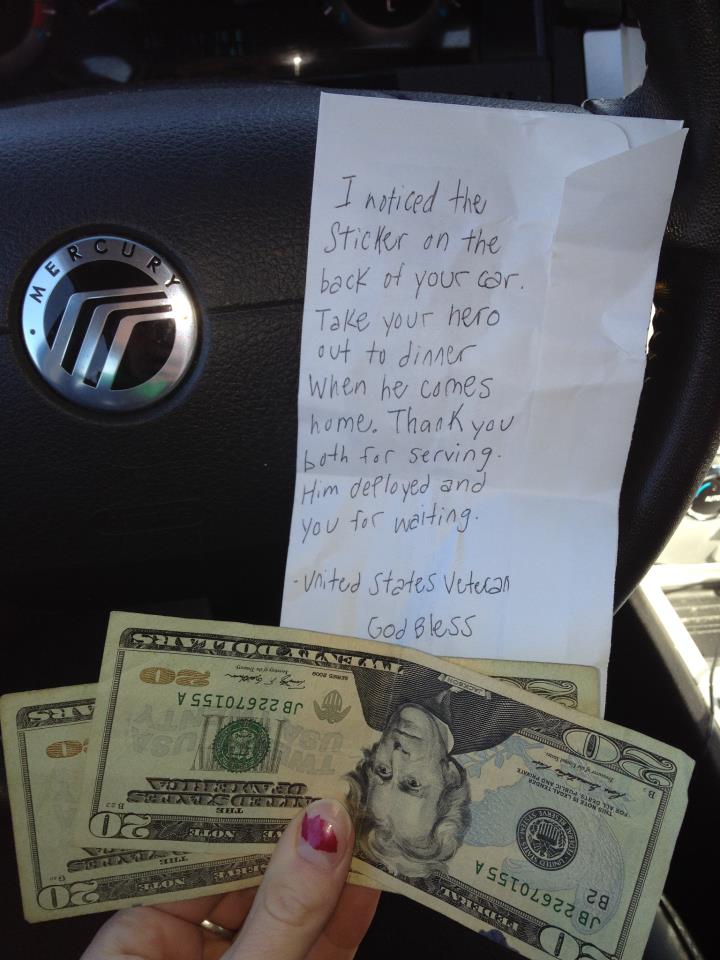 MERCURY
I noticed the
Sticker on the
back of your car.
Take your hero
out to dinner
When he comes
home. Thank you
both for serving.
Him deployed and
you for waiting.
-United States Veteran
God Bless
TWENTY DOLLARS
SERIES 2009
JACKSON
20
JB22670155A
THE
UNITED STATES
OF AMERICA
20
FEDERAL
NOTE
THIS NOTE IS LEGAL TENDER
FOR ALL DEBTS, PUBLIC AND PRIVATE
B2
JB22670155A
20
20
NOTE
THE
20